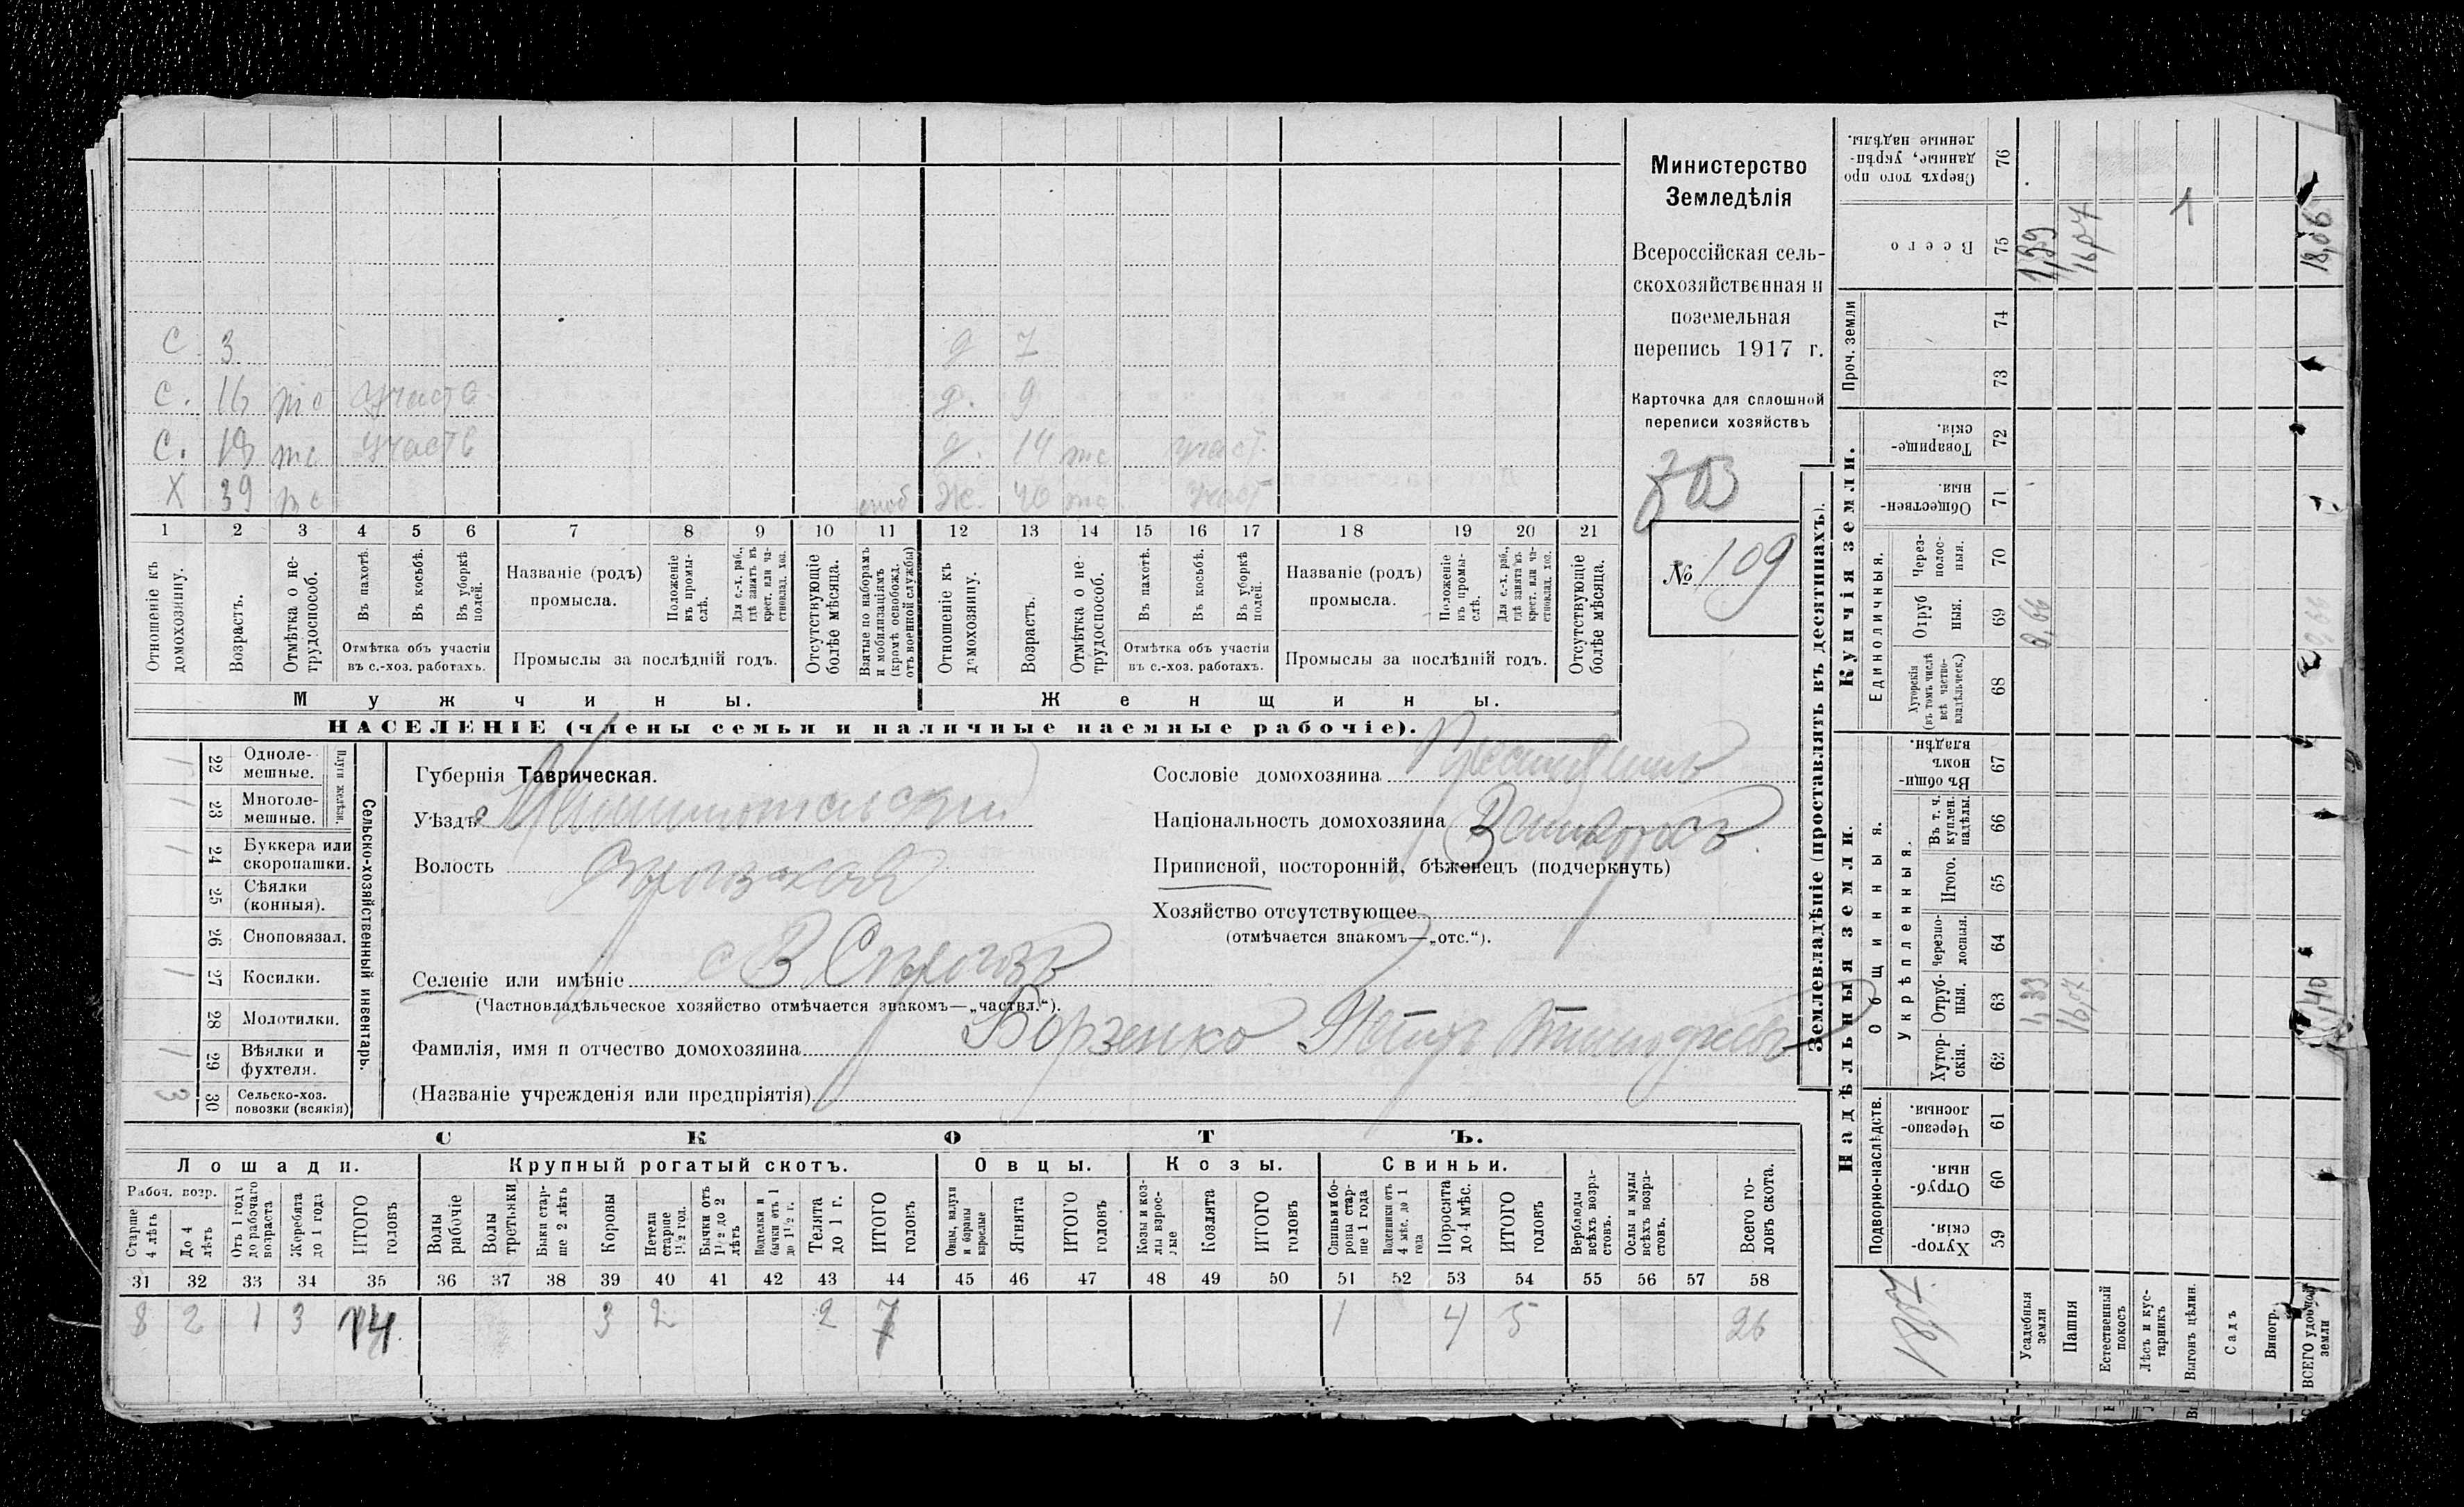 Министерство
Земледѣлія
Всероссійская сель-
скохозяйственная и
поземельная
перепись 1917 г.
Карточка для сплошной
переписи хозяйствъ
№ 109
С. 3 д 7
С. 16 д. 9
С. участ д. 14 участ.
Х 39 Ж. 40 участ
1 2 3 4 5 6 7 8 9 10 11 12 13 14 15 16 17 18 19 20 21
Отношеніе къ домохозяину.
Возрастъ.
Отмѣтка о не-трудоспособ.
Въ пахотѣ.
Въ косьбѣ.
Въ уборкѣ полей.
Отмѣтка объ участіи въ с.-хоз. работахъ.
Названіе (родъ) промысла.
Положеніе въ промы-слѣ.
Для с.-х. раб., гдѣ занятъ въ крест. или ча-стновлад. хоз.
Промыслы за послѣдній годъ.
Отсутствующіе болѣе мѣсяца.
Взятые по наборамъ и мобилизаціямъ (кромѣ освобожд. отъ военной службы)
Отношеніе къ домохозяину.
Возрастъ.
Отмѣтка о не трудоспособ.
Въ пахотѣ.
Въ косьбѣ.
Въ уборкѣ полей.
Отмѣтка объ участіи въ с.-хоз. работахъ.
Названіе (родъ) промысла.
Положеніе въ промы-слѣ.
Для с.-х. раб., гдѣ занята въ крест. или ча-стновлад. хоз.
Промыслы за послѣдній годъ.
Отсутствующіе болѣе мѣсяца.
Мужчины. Женщины.
НАСЕЛЕНІЕ (члены семьи и наличные наемные рабочіе).
Сельско-хозяйственный инвентарь.
Плуги желѣзн.
22 Одноле-мешные. 1
23 Многоле-мешные. 1
24 Буккера или скоропашки. 1
25 Сѣялки (конныя).
26 Сноповязал.
27 Косилки. 1
28 Молотилки.
29 Вѣялки и фухтеля. 1
30 Сельско-хоз. повозки (всякія) 3
Губернія Таврическая.
Уѣздъ Мелитопольскій
Волость
Селеніе или имѣніе с В Сѣрогозъ
(Частновладѣльческое хозяйство отмѣчается знакомъ—„частвл.“).
Фамилія, имя и отчество домохозяина Борзенко Петръ
(Названіе учрежденія или предпріятія)
Сословіе домохозяина
Національность домохозяина
Приписной, посторонній, бѣженецъ (подчеркнуть)
Хозяйство отсутствующее
(отмѣчается знакомъ—„отс.“).
СКОТЪ.
Лошади. Крупный рогатый скотъ. Овцы. Козы. Свиньи.
Рабоч. возр.
Старше 4 лѣтъ
До 4 лѣтъ
Отъ 1 года до рабочаго возраста
Жеребята до 1 года
ИТОГО головъ
Волы рабочіе
Волы третьяки
Быки стар-ше 2 лѣтъ
Коровы
Нетели старше 1½ год.
Бычки отъ 1½ до 2 лѣтъ
Подтелки и бычки отъ 1 до 1½ г.
Телята до 1 г.
ИТОГО головъ
Овцы, валухи и бараны взрослые
Ягнята
ИТОГО головъ
Козы и коз-лы взрос-лые
Козлята
ИТОГО головъ
Свиньи и бо-ровы стар-ше 1 года
Подсвинки отъ 4 мѣс. до 1 года
Поросята до 4 мѣс.
ИТОГО головъ
Верблюды всѣхъ возра-стовъ.
Ослы и мулы всѣхъ возра-стовъ.
Всего го-ловъ скота.
31 32 33 34 35 36 37 38 39 40 41 42 43 44 45 46 47 48 49 50 51 52 53 54 55 56 57 58
8 2 1 3 14 3 2 2 7 1 4 5 26
Землевладѣніе (проставлять въ десятинахъ).
Надѣльныя земли. Купчія земли. Проч. земли
Подворно-наслѣдств. Общинныя. Укрѣпленныя. Единоличныя.
Хутор-скія. 59
Отруб-ныя. 60
Черезпо-лосныя. 61
Хутор-скія. 62
Отруб-ныя. 63
Черезпо-лосныя. 64
Итого. 65
Въ т. ч. куплен. надѣлы. 66
Въ общи-номъ владѣн. 67
Хуторскія (въ томъ числѣ всѣ частно-владѣльческ.) 68
Отруб ныя. 69
Черезполос-ныя. 70
Обществен-ныя. 71
Товарище-скія. 72
73
74
Всего 75
Сверхъ того про данные, укрѣп-ленные надѣлы. 76
Усадебныя земли 1,33 0,66 1,99
Пашня 16,07 16,07
Естественный покосъ
Лѣсъ и кус-тарникъ
Выгонъ цѣлин.
Садъ
Виногр.
ВСЕГО удобной земли 18,06